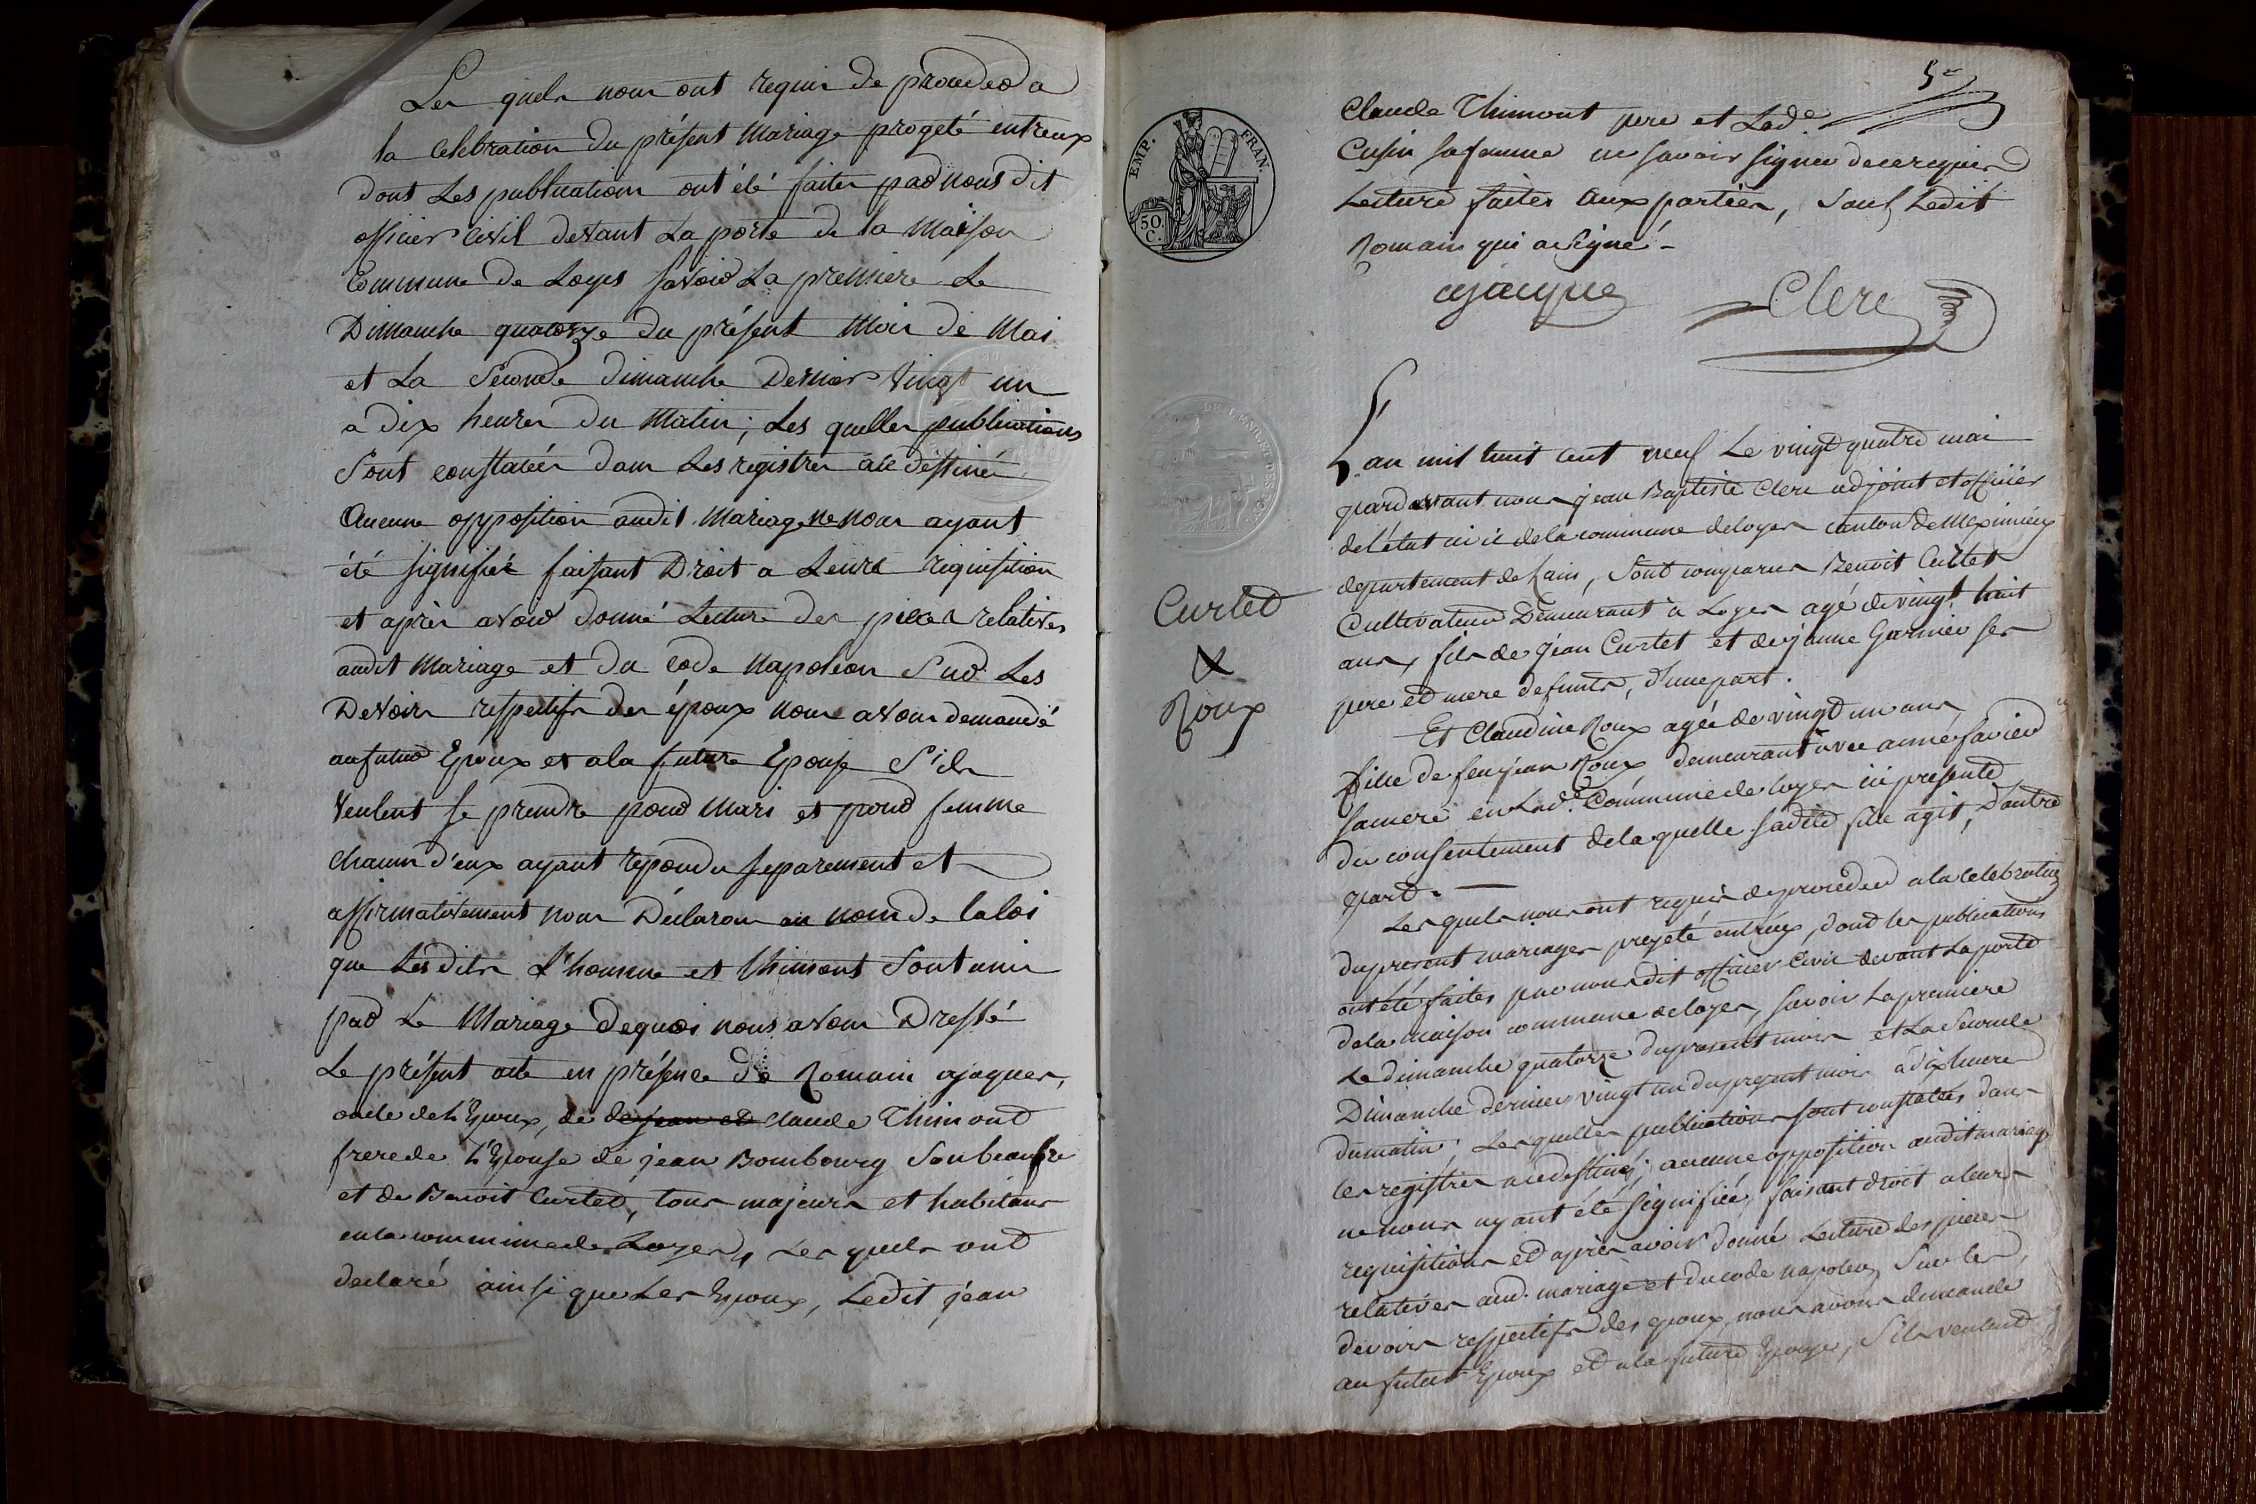 Les quels nous ont requis de proceder a
la celebration du présent Mariage progeté entreux
dont Les publications ont été faites par nous dit
officier Civil devant La porte de la Maison
Commune de Loyes savoir La premiere Le
Dimanche quatorze du présent Mois de Mai
et La Seconde dimanche Dernier Vingt un
a dix heures du Matin; Les quelles publications
Sont constatées dans Les registres a ce déstinés
Aucune opposition audit Mariage ne nous ayant
été signifiée faisant Droit a Leurs requisition
et après avoir donné Lecture des pieces relatives
audit Mariage et du code Napoléon Sur Les
Devoirs respectifs des époux nous avons demandé
au futur Epoux et a la future Epouse S'ils
Veulent se prendre pour Mari et pour femme
chacun d'eux ayant repondu separement et
affirmativement nous Déclarons au nom de la loi
que Lesdits L'homme et Thimont Sont unis
par Le Mariage de quoi nous avons Dressé
Le présent acte en présence de Romain ajaques,
oncle de L'Epoux, de de jean et Claude Thimont
frere de L'Epouse de jean Bombourg Son beaufre
et de Benoit Curtet, tous majeurs et habitans
en la commune de Loyes, Les quels ont
declaré ainsi que Les Epoux, Ledit jean
5e
Claude Thimont pere et Lade
Cusin sa femme ne savoir signer de ce requis
Lecture faites aux parties, Sauf Ledit
Romain qui a signé
ajacque Clerc
EMP. FRAN.
50 C.
Curtet
&
Roux
L'an mil huit cent neuf Le vingt quatre mai
pardevant nous jean Baptiste Clerc adjoint et officier
de l'état civil de la commune de loyes canton de Meximieux
departement de Lain, Sont comparus Benoit Curtet
Cultivateur Demeurant a Loyes agé de vingt huit
ans, fils de jean Curtet et de jeanne Garnier ses
pere et mere defunts, d'une part.
Et Claudine Roux agée de vingt un ans
fille de feu jean Roux demeurant avec anne favier
sa mere en Lade Commune de loyes ici presente,
du consentement de la quelle sadite fille agit, D'autre
part.
Les quels nous ont requis de proceder a la celebration
du present mariages projeté entreux, dont les publications
ont été faites par nous dit officier Civil devant La porte
de la maison commune de loyes, savoir La premiere
Le dimanche quatorze du present mois et La Seconde
Dimanche dernier vingt un du present mois a dix heures
du matin, Les quelles publications sont constatées dans
les registres a ce destinés; aucune opposition audit mariage
ne nous ayant été signifiée, faisant droit a leurs
requisitions et après avoir donné Lecture des pieces
relatives aud. mariage et du code napoleon Sur les
devoirs respectifs des epoux, nous avons demandé
au futur Epoux et a la future Epouse, S'ils veulent